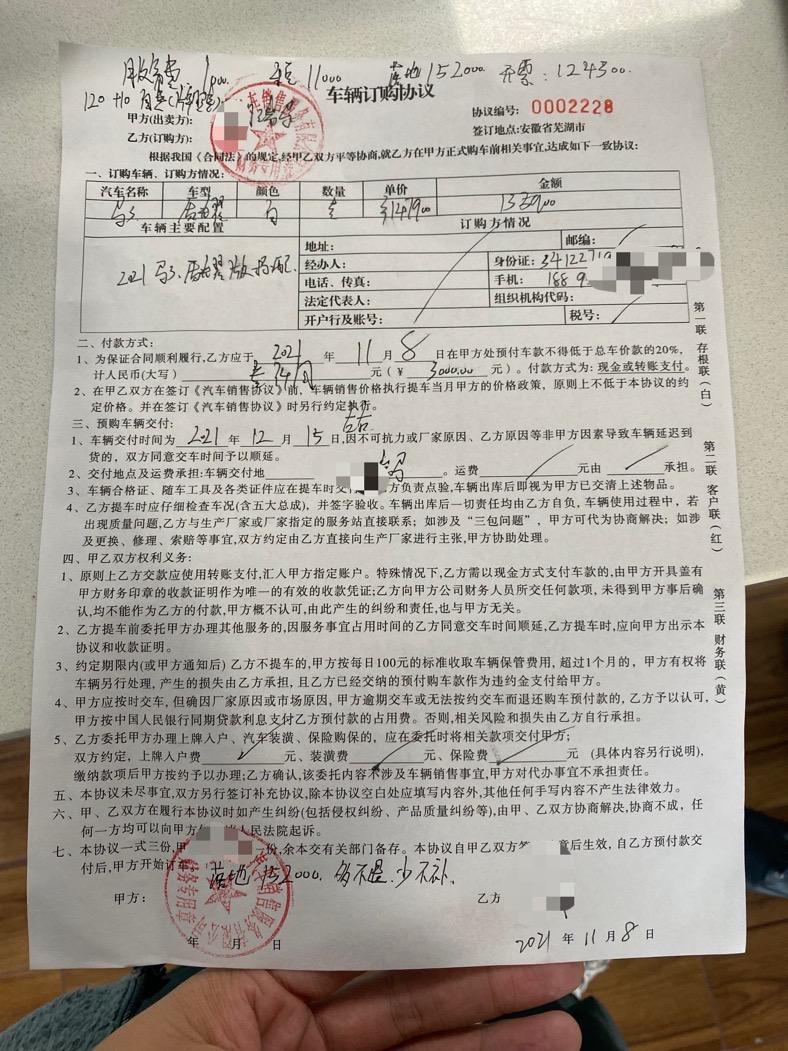 1000. 11000 落地 152000. 开票: 124300.
120 +10
车辆订购协议
甲方(出卖方):
协议编号: 0002228
乙方(订购方):
签订地点:安徽省芜湖市
根据我国《合同法》的规定,经甲乙双方平等协商,就乙方在甲方正式购车前相关事宜,达成如下一致协议:
一、订购车辆、订购方情况:
汽车名称 车型 颜色 数量 单价 金额
白
车辆主要配置 订购方情况
地址: 邮编:
2021 经办人: 身份证: 3412271
电话、传真: 手机: 188 9
法定代表人: 组织机构代码:
开户行及账号: 税号:
二、付款方式:
1、为保证合同顺利履行,乙方应于 2021 年 11 月 8 日在甲方处预付车款不得低于总车价款的20%,
计人民币(大写) 元(¥ 3000.00 元)。付款方式为: 现金或转账支付。
2、在甲乙双方在签订《汽车销售协议》前, 车辆销售价格执行提车当月甲方的价格政策, 原则上不低于本协议的约
定价格。并在签订《汽车销售协议》时另行约定执行。
三、预购车辆交付:
左右
1、车辆交付时间为 2021 年 12 月 15 日,因不可抗力或厂家原因、乙方原因等非甲方因素导致车辆延迟到
货的, 双方同意交车时间予以顺延。
2、交付地点及运费承担:车辆交付地 。运费 元由 承担。
3、车辆合格证、随车工具及各类证件应在提车时交 方负责点验, 车辆出库后即视为甲方已交清上述物品。
4、乙方提车时应仔细检查车况(含五大总成), 并签字验收。车辆出库后一切责任均由乙方自负, 车辆使用过程中, 若
出现质量问题, 乙方与生产厂家或厂家指定的服务站直接联系; 如涉及“三包问题”, 甲方可代为协商解决; 如涉
及更换、修理、索赔等事宜, 双方约定由乙方直接向生产厂家进行主张, 甲方协助处理。
四、甲乙双方权利义务:
1、原则上乙方交款应使用转账支付, 汇入甲方指定账户。特殊情况下, 乙方需以现金方式支付车款的, 由甲方开具盖有
甲方财务印章的收款证明作为唯一的有效的收款凭证; 乙方向甲方公司财务人员所交任何款项, 未得到甲方事后确
认, 均不能作为乙方的付款, 甲方概不认可, 由此产生的纠纷和责任, 也与甲方无关。
2、乙方提车前委托甲方办理其他服务的, 因服务事宜占用时间的乙方同意交车时间顺延, 乙方提车时, 应向甲方出示本
协议和收款证明。
3、约定期限内(或甲方通知后) 乙方不提车的, 甲方按每日100元的标准收取车辆保管费用, 超过1个月的, 甲方有权将
车辆另行处理, 产生的损失由乙方承担, 且乙方已经交纳的预付购车款作为违约金支付给甲方。
4、甲方应按时交车, 但确因厂家原因或市场原因, 甲方逾期交车或无法按约交车而退还购车预付款的, 乙方予以认可,
甲方按中国人民银行同期贷款利息支付乙方预付款的占用费。否则, 相关风险和损失由乙方自行承担。
5、乙方委托甲方办理上牌入户、汽车装潢、保险购保的, 应在委托时将相关款项交付甲方;
双方约定, 上牌入户费 元、装潢费 元、保险费 元 (具体内容另行说明),
缴纳款项后甲方按约予以办理; 乙方确认, 该委托内容不涉及车辆销售事宜, 甲方对代办事宜不承担责任。
五、本协议未尽事宜, 双方另行签订补充协议, 除本协议空白处应填写内容外, 其他任何手写内容不产生法律效力。
六、甲、乙双方在履行本协议时如产生纠纷(包括侵权纠纷、产品质量纠纷等), 由甲、乙双方协商解决, 协商不成, 任
何一方均可以向甲方 人民法院起诉。
七、本协议一式三份, 甲 份, 余本交有关部门备存。本协议自甲乙双方 章后生效, 自乙方预付款交
付后, 甲方开始订车
落地 152000. 多不退. 少不补.
甲方: 乙方
年 月 日 2021 年 11 月 8 日
第一联 存根联(白)
第二联 客户联(红)
第三联 财务联(黄)